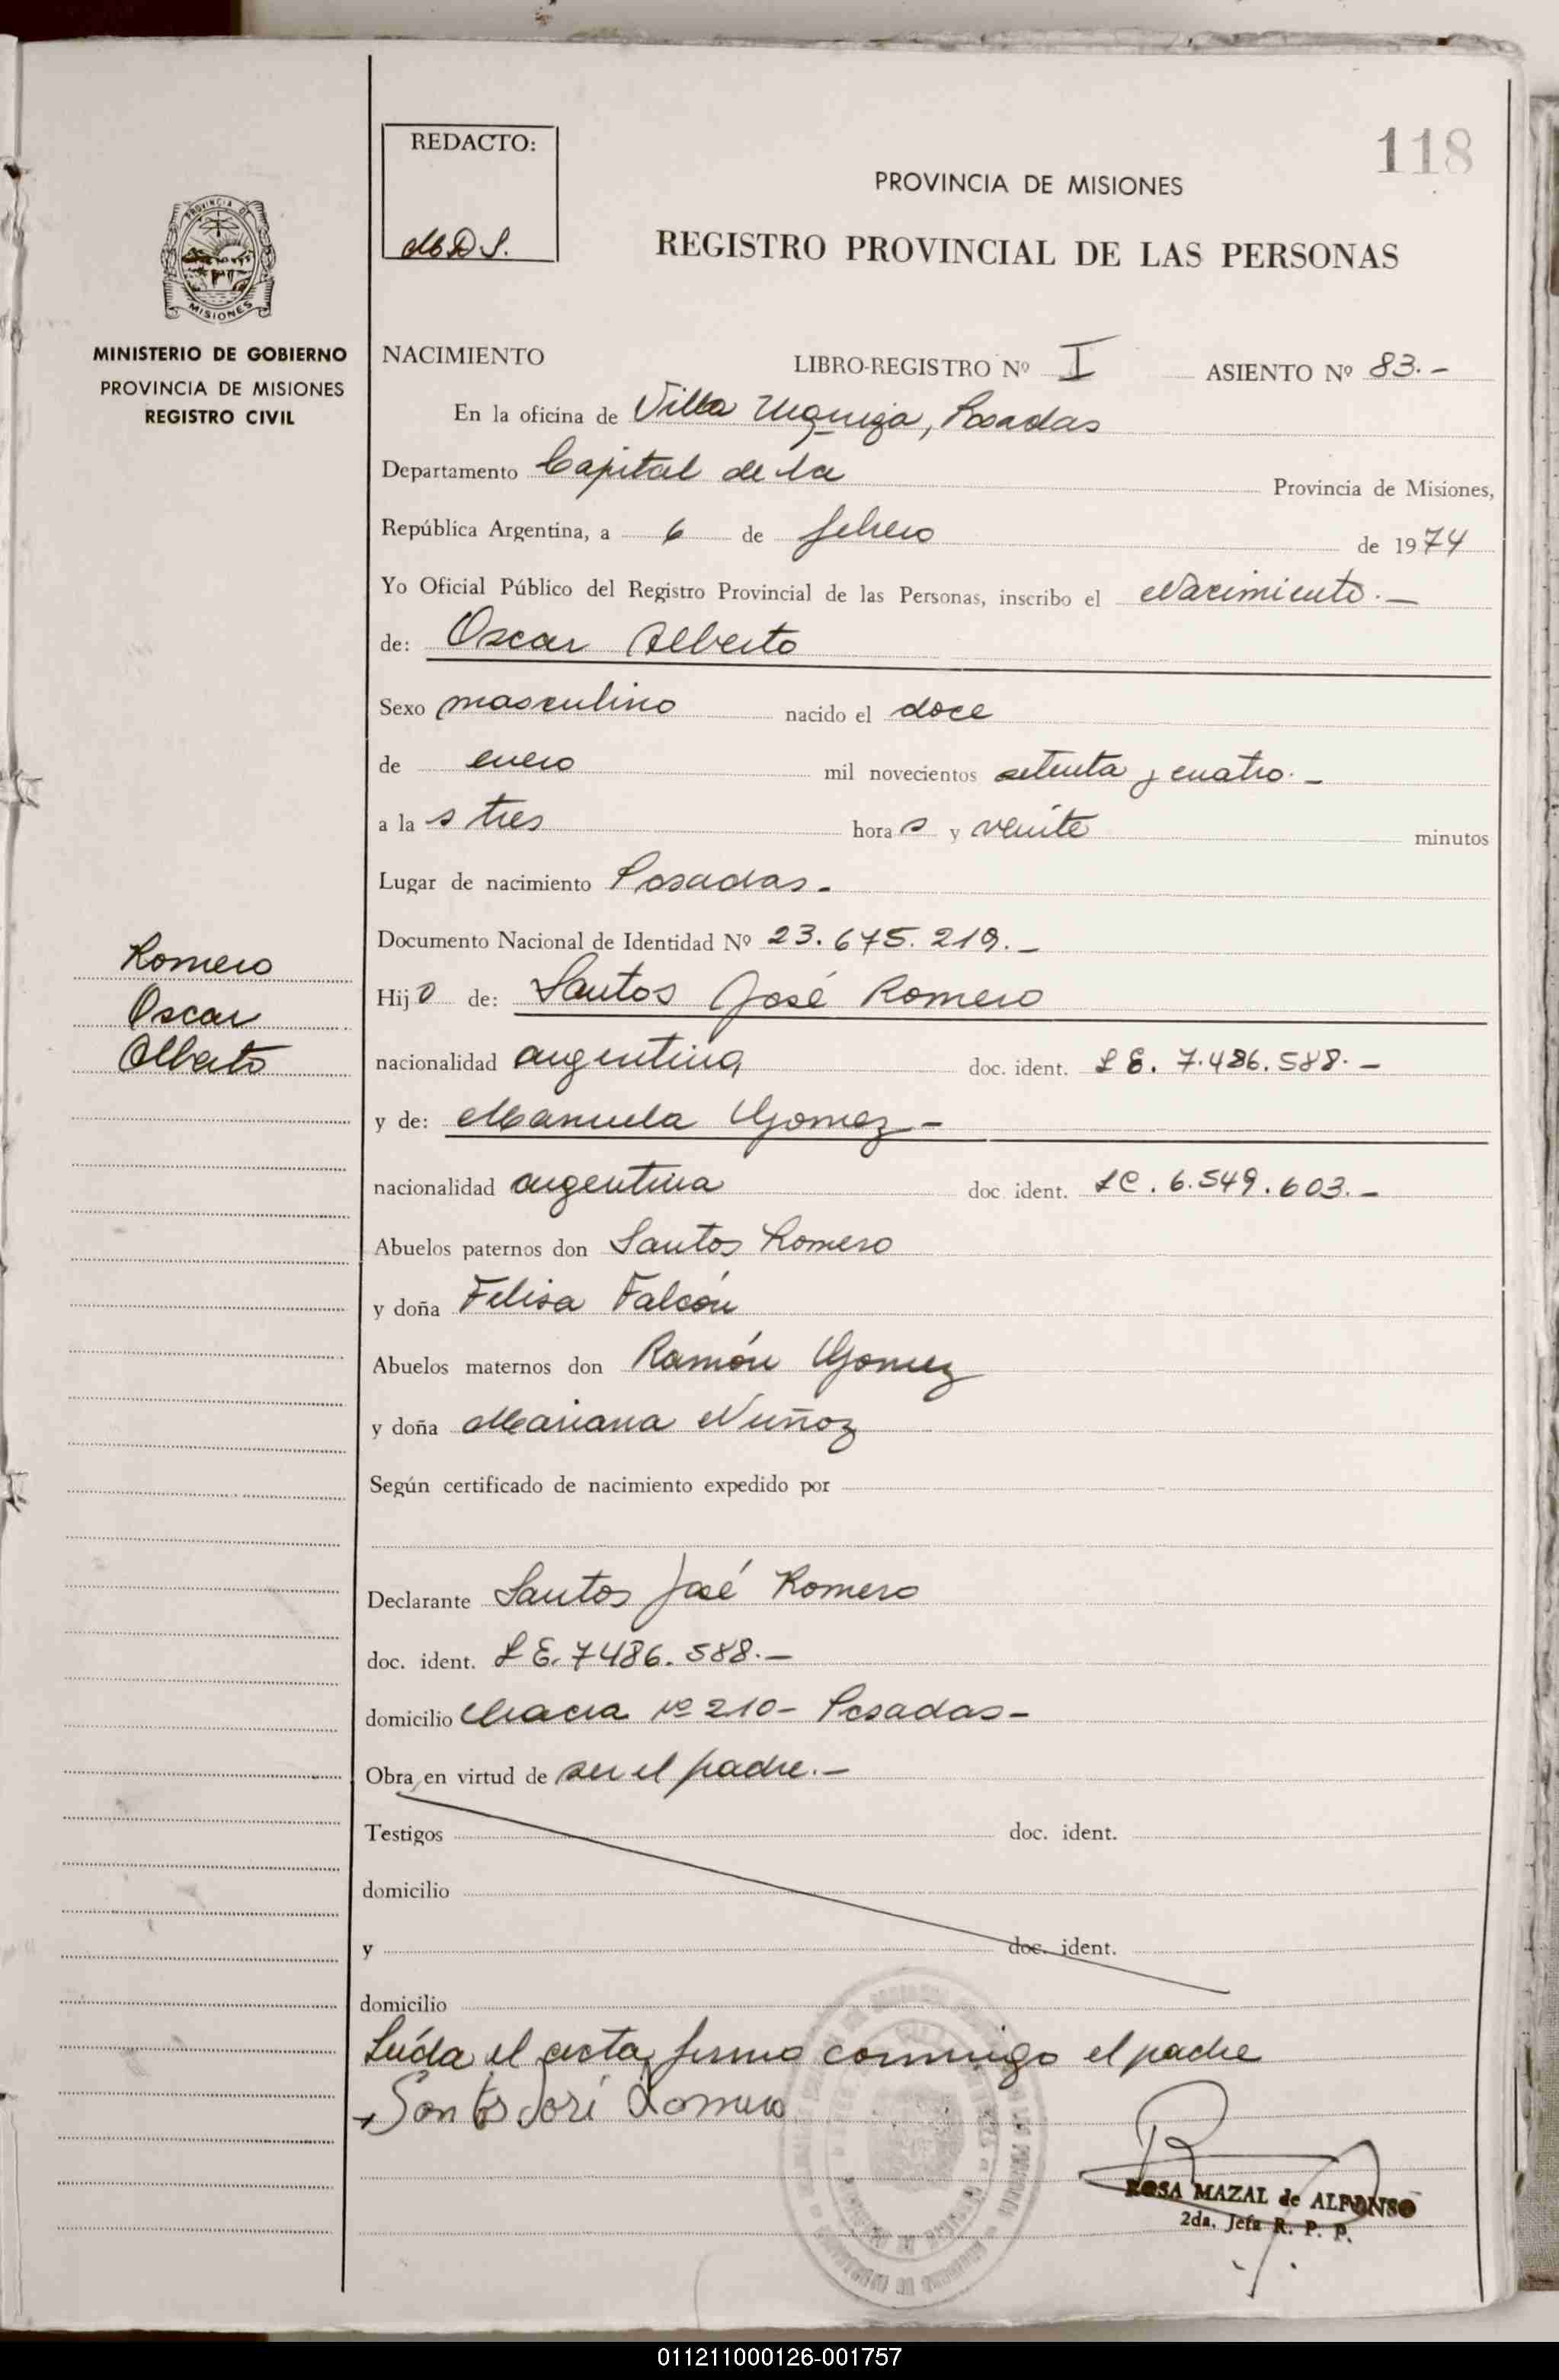 118
REDACTO:
PROVINCIA DE MISIONES
REGISTRO PROVINCIAL DE LAS PERSONAS
PROVINCIA DE
MISIONES
MINISTERIO DE GOBIERNO
PROVINCIA DE MISIONES
REGISTRO CIVIL
NACIMIENTO LIBRO-REGISTRO Nº I ASIENTO Nº 83.-
En la oficina de Villa Urquiza, Posadas
Departamento Capital de la Provincia de Misiones,
República Argentina, a 6 de febrero de 1974
Yo Oficial Público del Registro Provincial de las Personas, inscribo el Nacimiento.-
de: Oscar Alberto
Sexo masculino nacido el doce
de enero mil novecientos setenta y cuatro.-
a las tres horas y veinte minutos
Lugar de nacimiento Posadas.
Documento Nacional de Identidad Nº 23.675.219.-
Romero
Oscar
Alberto
Hijo de: Santos José Romero
nacionalidad argentina doc. ident. LE. 7.486.588.-
y de: Manuela Gomez-
nacionalidad argentina doc ident. LC. 6.549.603.-
Abuelos paternos don Santos Romero
y doña Felisa Falcón
Abuelos maternos don Ramón Gomez
y doña Mariana Nuñoz
Según certificado de nacimiento expedido por
Declarante Santos José Romero
doc. ident. LE. 7486.588.-
domicilio Chacra Nº 210- Posadas-
Obra en virtud de ser el padre.-
Testigos doc. ident.
domicilio
y doc. ident.
domicilio
Leída el acta, firma conmigo el padre
Santos José Romero
ROSA MAZAL de ALFONSO
2da. Jefa R. P. P.
011211000126-001757